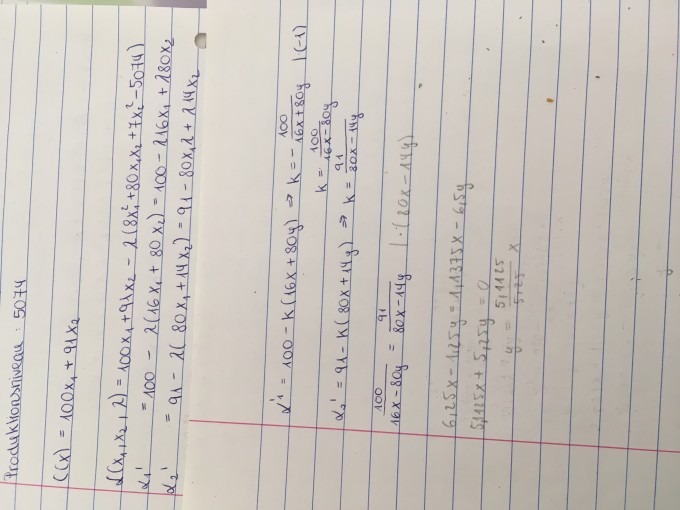 Produktionsniveau : 5074
C(x) = 100x₁ + 91x₂
L(x₁, x₂, λ) = 100x₁ + 91x₂ − λ(8x₁² + 80x₁x₂ + 7x₂² − 5074)
L₁' = 100 − λ(16x₁ + 80x₂) = 100 − λ16x₁ + λ80x₂
L₂' = 91 − λ(80x₁ + 14x₂) = 91 − 80x₁λ + λ14x₂
L'₁ = 100 − k(16x + 80y) ⇒ k = − 100/16x+80y |(-1)
k = 100/16x−80y
L₂' = 91 − k(80x + 14y) ⇒ k = 91/80x−14y
100/16x−80y = 91/80x−14y | · (80x − 14y)
6,25x − 1,25y = 1,1375x − 6,5y
5,1125x + 5,25y = 0
y = 5,1125/5,25 x